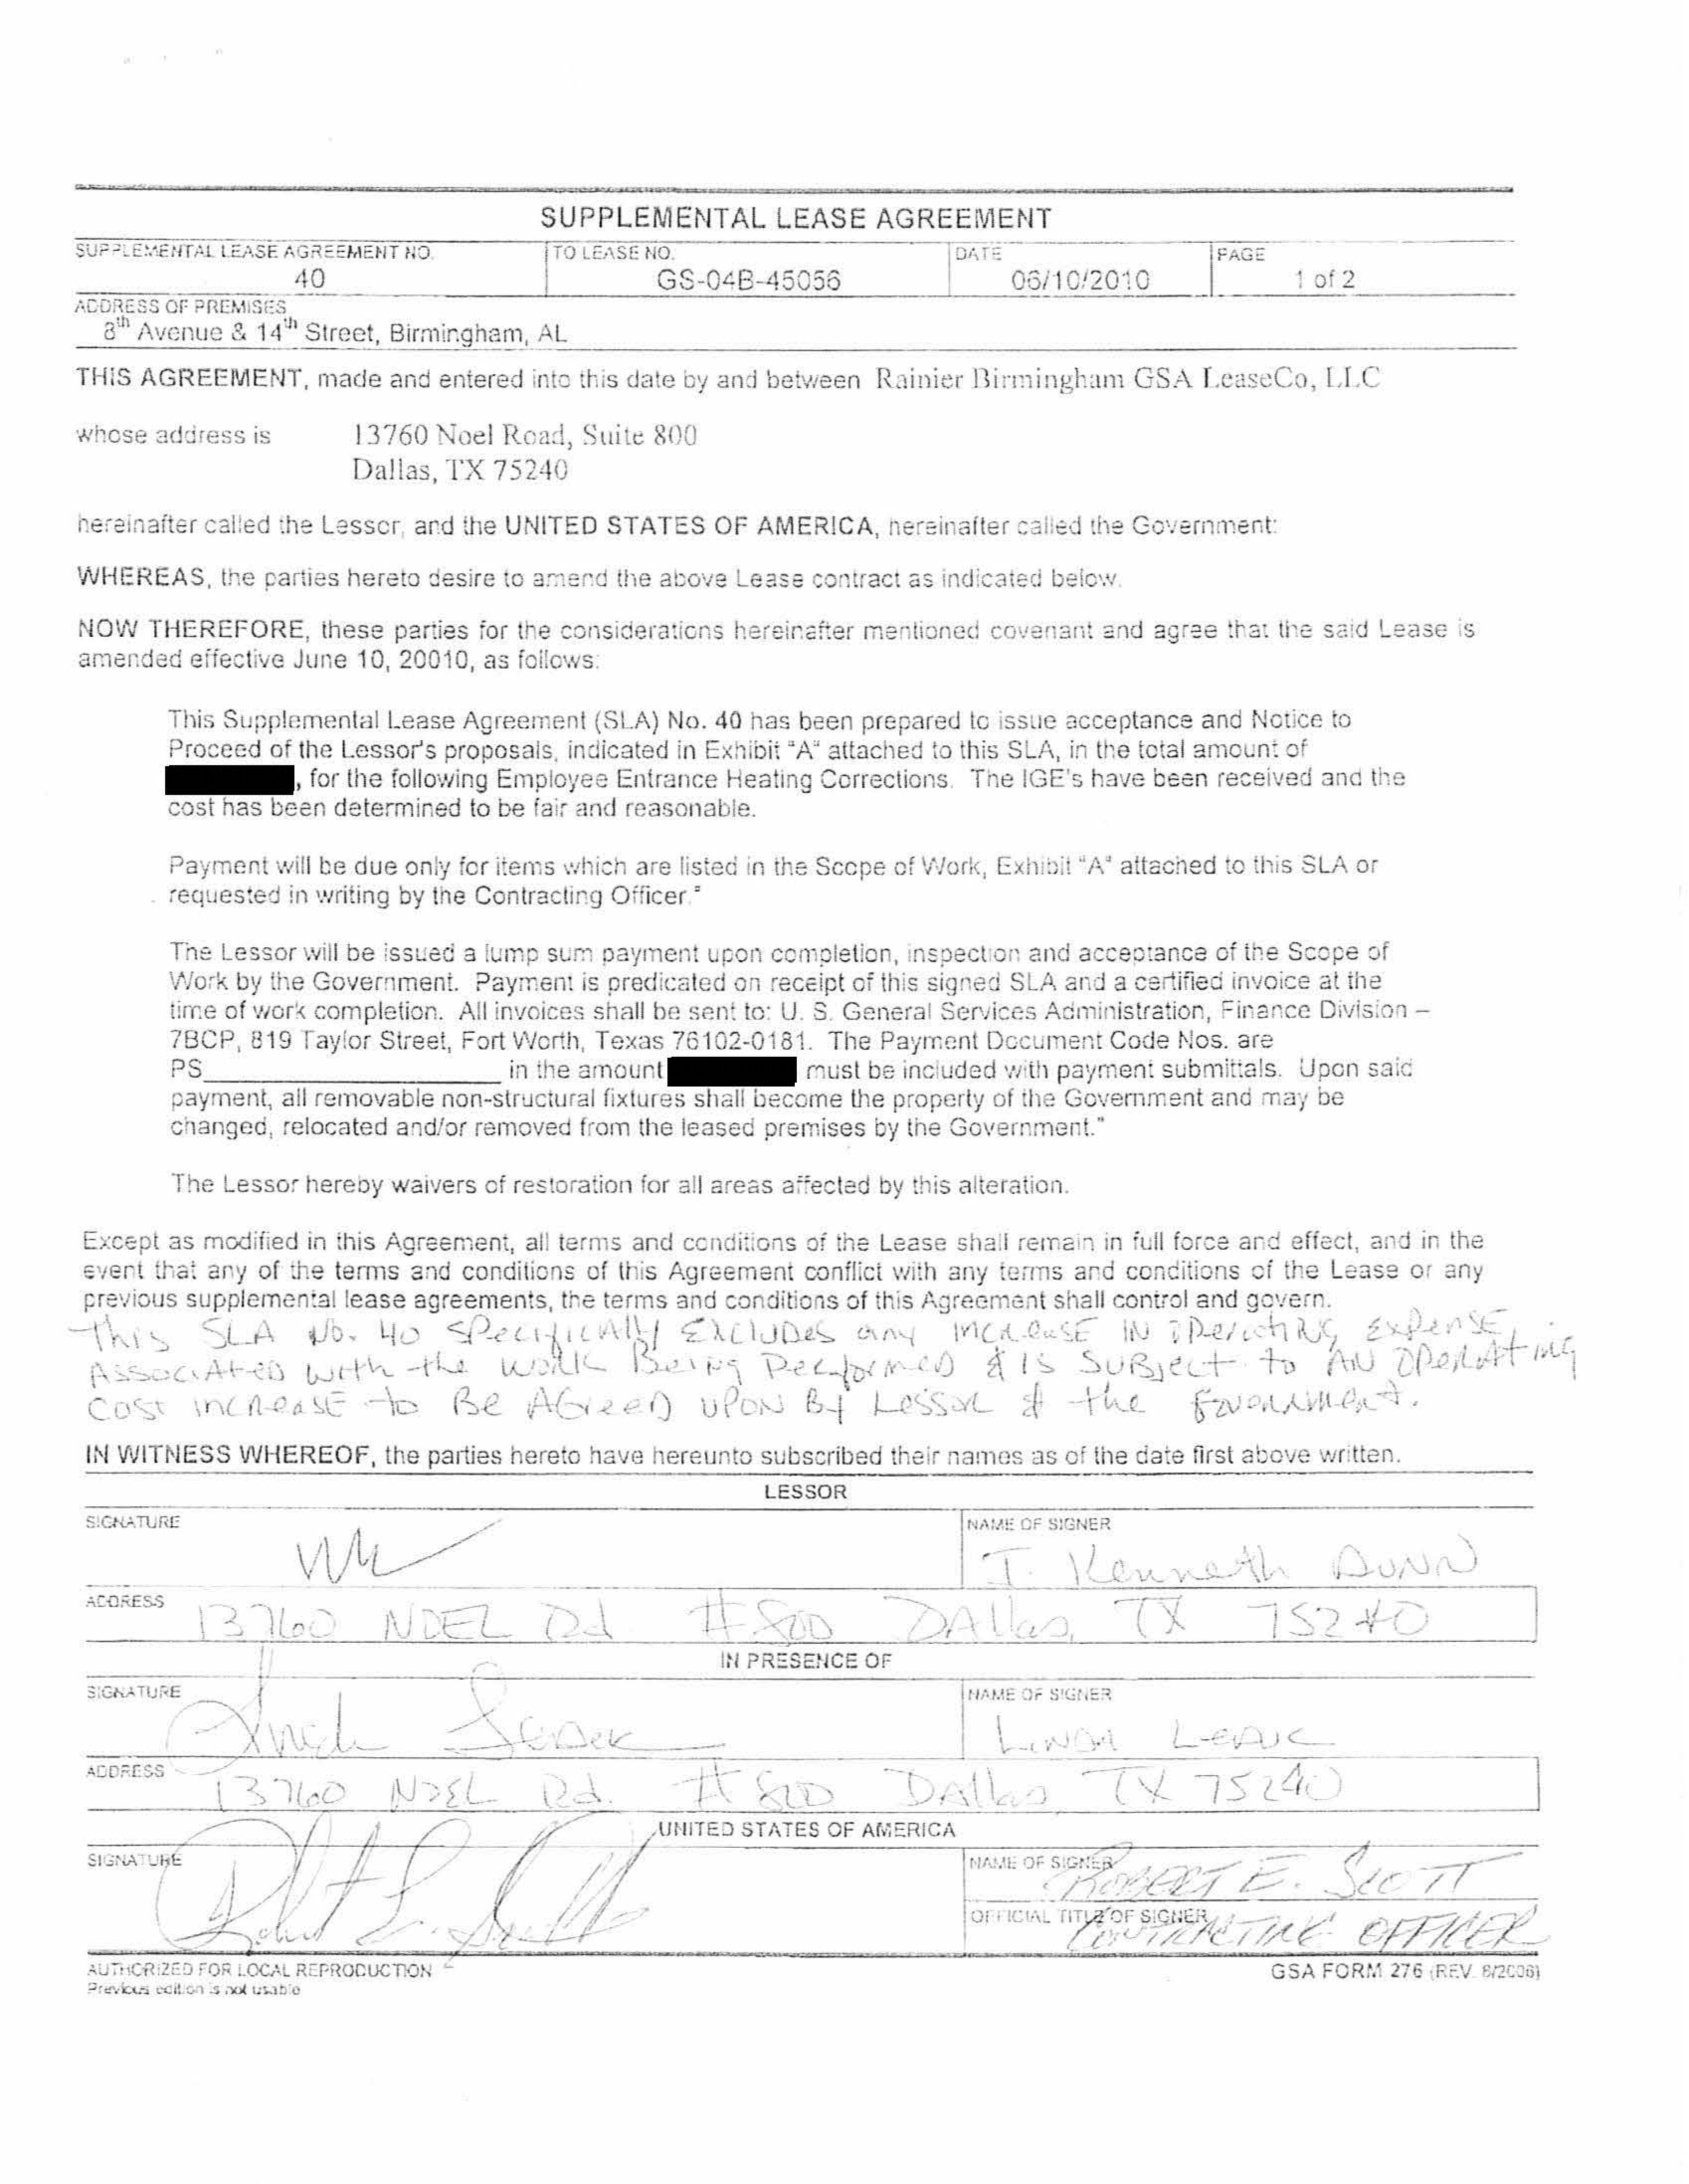 SUPPLEMENTAL LEASE AGREEMENT
SUPPLEMENTAL LEASE AGREEMENT NO. TO LEASE NO. DATE PAGE
40 GS-04B-45056 06/10/2010 1 of 2
ADDRESS OF PREMISES
8th Avenue & 14th Street, Birmingham, AL
THIS AGREEMENT, made and entered into this date by and between Rainier Birmingham GSA LeaseCo, LLC
whose address is 13760 Noel Road, Suite 800
Dallas, TX 75240
hereinafter called the Lessor, and the UNITED STATES OF AMERICA, hereinafter called the Government:
WHEREAS, the parties hereto desire to amend the above Lease contract as indicated below.
NOW THEREFORE, these parties for the considerations hereinafter mentioned covenant and agree that the said Lease is
amended effective June 10, 20010, as follows:
This Supplemental Lease Agreement (SLA) No. 40 has been prepared to issue acceptance and Notice to
Proceed of the Lessor's proposals, indicated in Exhibit "A" attached to this SLA, in the total amount of
, for the following Employee Entrance Heating Corrections. The IGE's have been received and the
cost has been determined to be fair and reasonable.
Payment will be due only for items which are listed in the Scope of Work, Exhibit "A" attached to this SLA or
requested in writing by the Contracting Officer."
The Lessor will be issued a lump sum payment upon completion, inspection and acceptance of the Scope of
Work by the Government. Payment is predicated on receipt of this signed SLA and a certified invoice at the
time of work completion. All invoices shall be sent to: U. S. General Services Administration, Finance Division –
7BCP, 819 Taylor Street, Fort Worth, Texas 76102-0181. The Payment Document Code Nos. are
PS____________________ in the amount must be included with payment submittals. Upon said
payment, all removable non-structural fixtures shall become the property of the Government and may be
changed, relocated and/or removed from the leased premises by the Government."
The Lessor hereby waivers of restoration for all areas affected by this alteration.
Except as modified in this Agreement, all terms and conditions of the Lease shall remain in full force and effect, and in the
event that any of the terms and conditions of this Agreement conflict with any terms and conditions of the Lease or any
previous supplemental lease agreements, the terms and conditions of this Agreement shall control and govern.
This SLA No. 40 SPecificAlly ExcluDes any increase IN OPerating ExPenSE,
AssociAteD with the work Being PerformeD & IS SUBject to AN OPeRAting
COST increase to Be AGreeD UPON By Lessor & the Government.
IN WITNESS WHEREOF, the parties hereto have hereunto subscribed their names as of the date first above written.
LESSOR
SIGNATURE NAME OF SIGNER
J. Kenneth DUNN
ADDRESS 13760 NOEL Rd #800 DAllas, TX 75240
IN PRESENCE OF
SIGNATURE NAME OF SIGNER
ADDRESS 13760 NOEL Rd. #800 DAllas TX 75240
UNITED STATES OF AMERICA
SIGNATURE NAME OF SIGNER ROBERT E. SCOTT
OFFICIAL TITLE OF SIGNER CONTRACTING OFFICER
AUTHORIZED FOR LOCAL REPRODUCTION GSA FORM 276 (REV. 8/2006)
Previous edition is not usable